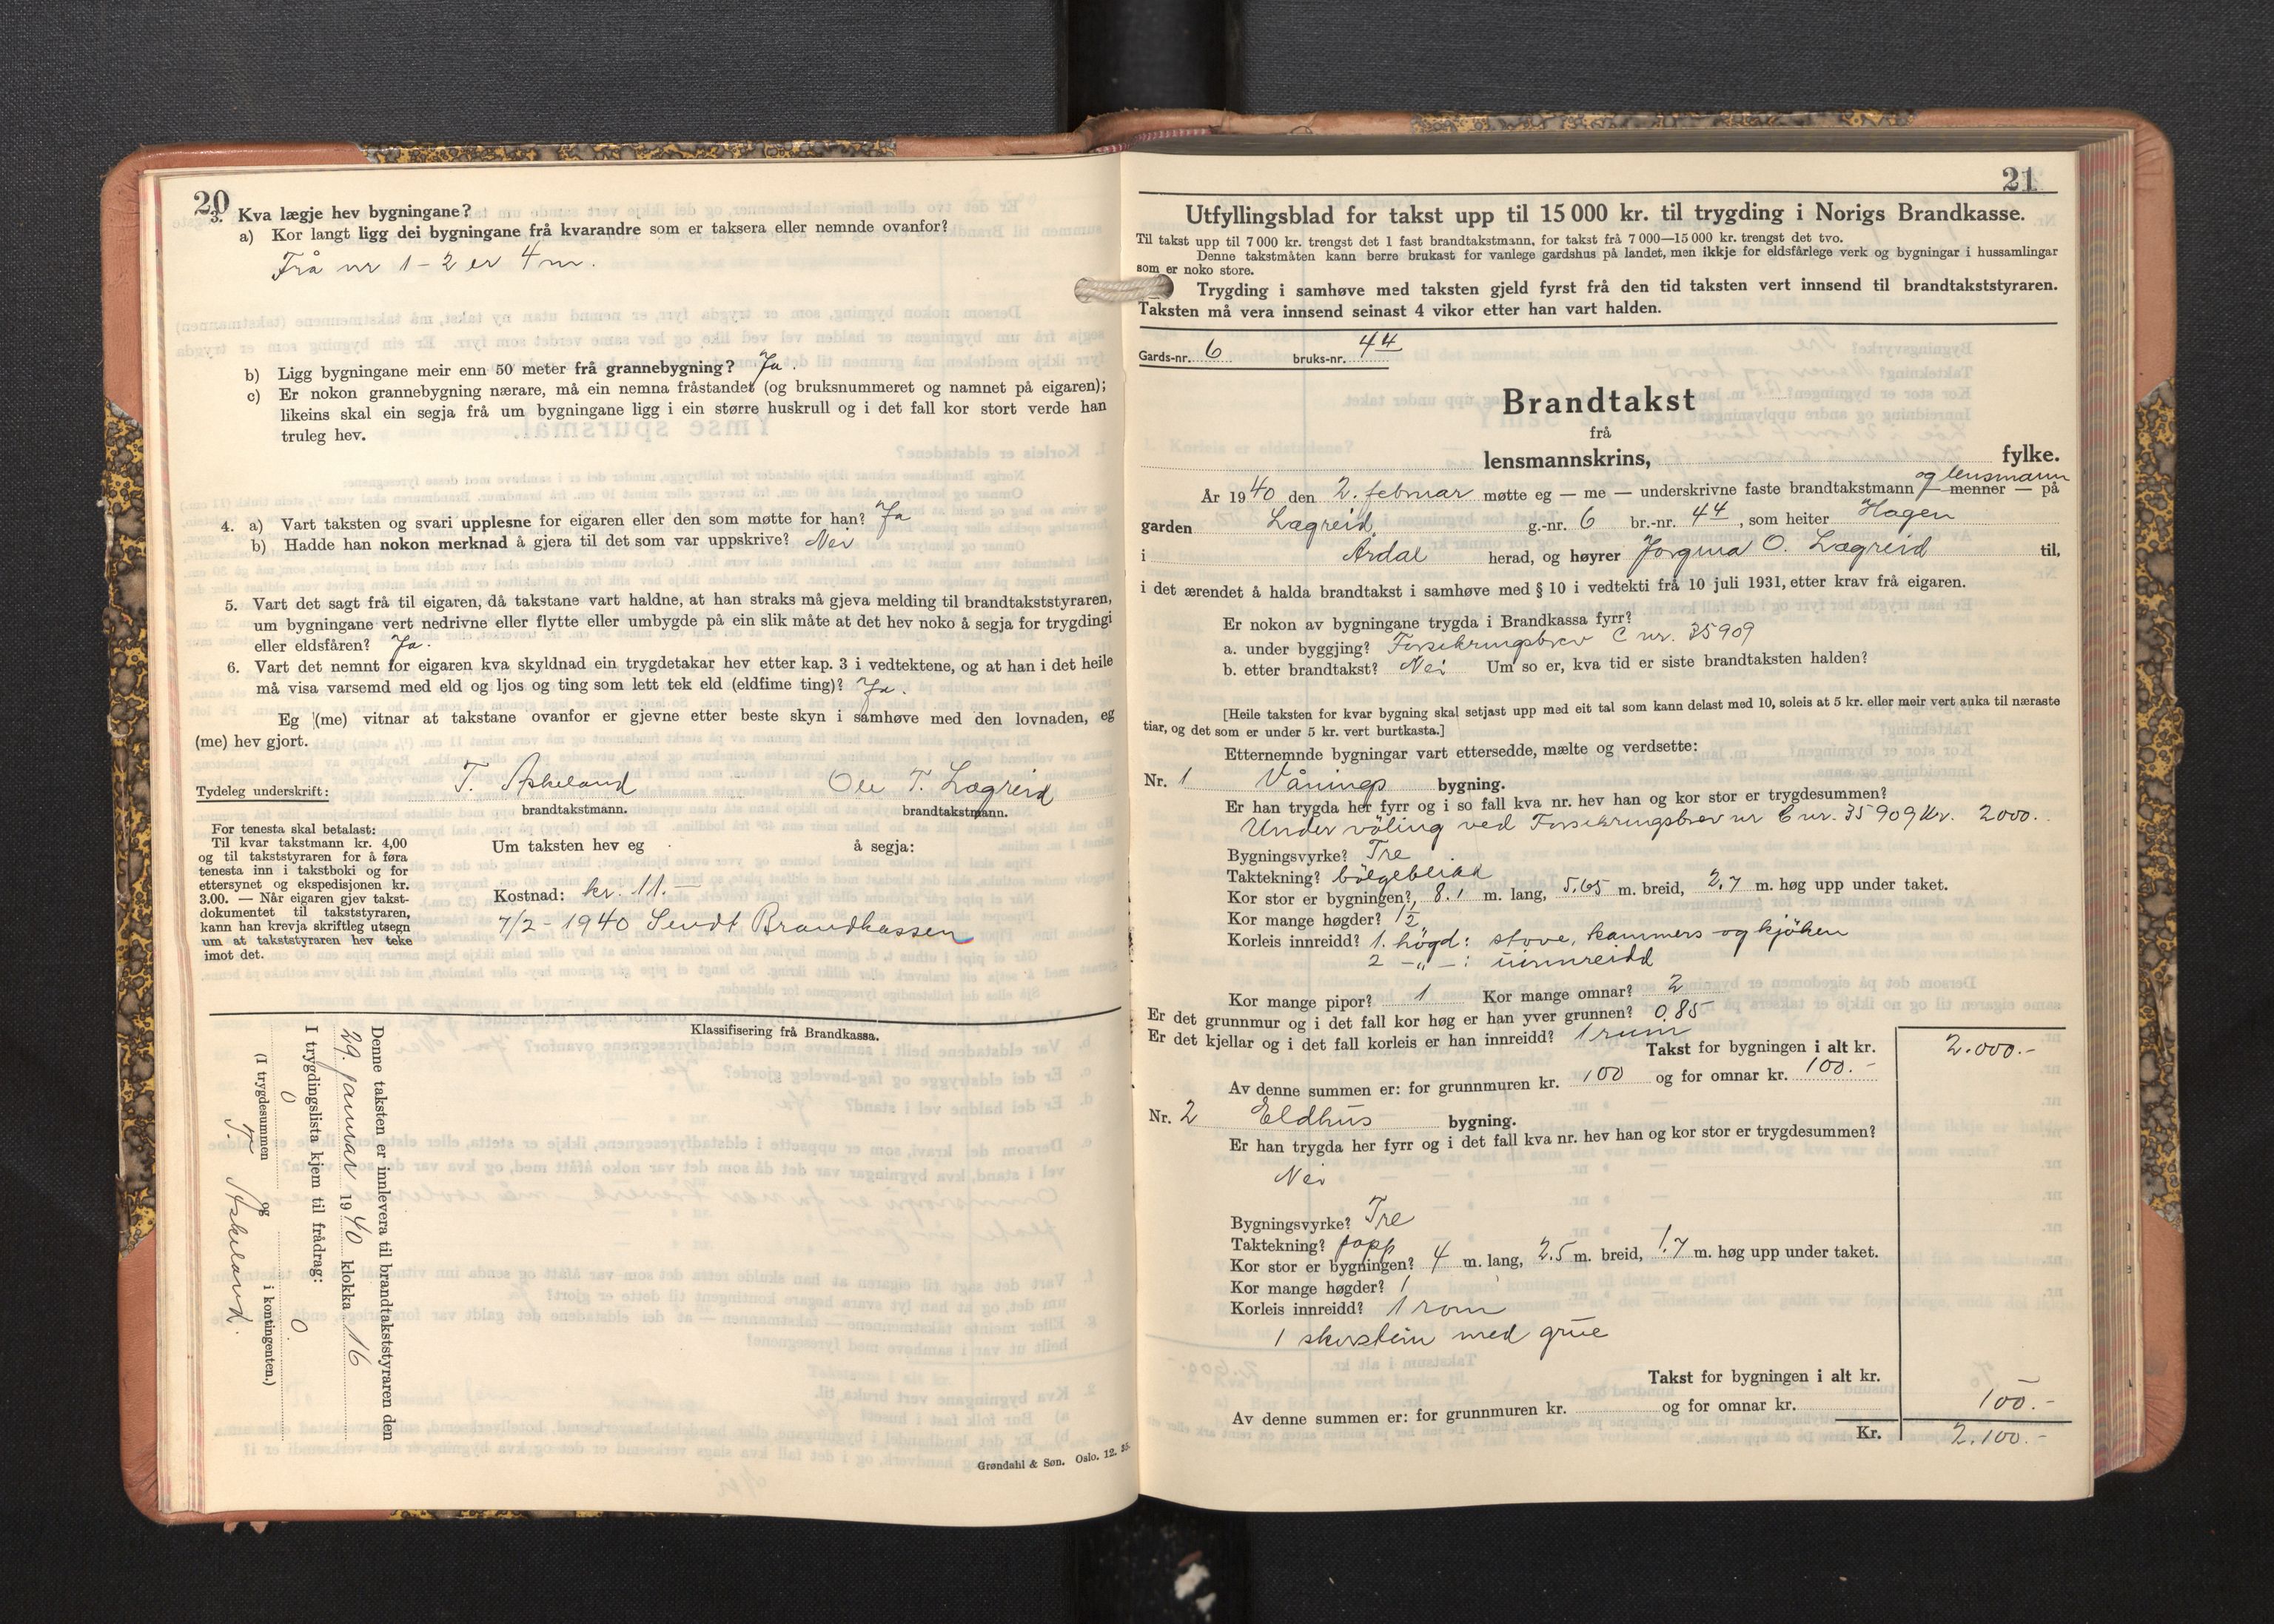 20
3. Kva lægje hev bygningane?
a) Kor langt ligg dei bygningane frå kvarandre som er taksera eller nemnde ovanfor?
Frå nr 1 - 2 er 4 m.
b) Ligg bygningane meir enn 50 meter frå grannebygning? Ja.
c) Er nokon grannebygning nærare, må ein nemna fråstandet (og bruksnummeret og namnet på eigaren);
likeins skal ein segja frå um bygningane ligg i ein større huskrull og i det fall kor stort verde han
truleg hev.
4. a) Vart taksten og svari upplesne for eigaren eller den som møtte for han? Ja
b) Hadde han nokon merknad å gjera til det som var uppskrive? Nei
5. Vart det sagt frå til eigaren, då takstane vart haldne, at han straks må gjeva melding til brandtakststyraren,
um bygningane vert nedrivne eller flytte eller umbygde på ein slik måte at det hev noko å segja for trygdingi
eller eldsfåren? Ja.
6. Vart det nemnt for eigaren kva skyldnad ein trygdetakar hev etter kap. 3 i vedtektene, og at han i det heile
må visa varsemd med eld og ljos og ting som lett tek eld (eldfime ting)? Ja.
Eg (me) vitnar at takstane ovanfor er gjevne etter beste skyn i samhøve med den lovnaden, eg
(me) hev gjort.
Tydeleg underskrift: T. Askeland Ole T. Lægreid
brandtakstmann. brandtakstmann.
For tenesta skal betalast:
Til kvar takstmann kr. 4,00
og til takststyraren for å føra
tenesta inn i takstboki og for
ettersynet og ekspedisjonen kr.
3.00. — Når eigaren gjev takst-
dokumentet til takststyraren,
kann han krevja skriftleg utsegn
um at takststyraren hev teke
imot det.
Um taksten hev eg å segja:
Kostnad: kr. 11.—
7/2 - 1940 Sendt Brandkassen
Klassifisering frå Brandkassa.
Denne taksten er innlevera til brandtakststyraren den
29. januar 1940 klokka 16
I trygdingslista kjem til frådrag:
0 0
(I trygdesummen og i kontingenten.)
T. Askeland.
Grøndahl & Søn. Oslo. 12. 35.
21
Utfyllingsblad for takst upp til 15 000 kr. til trygding i Norigs Brandkasse.
Til takst upp til 7 000 kr. trengst det 1 fast brandtakstmann, for takst frå 7 000—15 000 kr. trengst det tvo.
Denne takstmåten kann berre brukast for vanlege gardshus på landet, men ikkje for eldsfårlege verk og bygningar i hussamlingar
som er noko store.
Trygding i samhøve med taksten gjeld fyrst frå den tid taksten vert innsend til brandtakststyraren.
Taksten må vera innsend seinast 4 vikor etter han vart halden.
Gards-nr. 6 bruks-nr. 44
Brandtakst
frå
lensmannskrins, fylke.
og lensmann
År 1940 den 2. februar møtte eg — me — underskrivne faste brandtakstmann — menner — på
garden Lægreid g.-nr. 6 br.-nr. 44, som heiter Hagen
i Ardal herad, og høyrer Jorgina O. Lægreid til,
i det ærendet å halda brandtakst i samhøve med § 10 i vedtekti frå 10 juli 1931, etter krav frå eigaren.
Er nokon av bygningane trygda i Brandkassa fyrr?
a. under byggjing? Forsekringsbrev C nr. 35909
b. etter brandtakst? Nei Um so er, kva tid er siste brandtaksten halden?
[Heile taksten for kvar bygning skal setjast upp med eit tal som kann delast med 10, soleis at 5 kr. eller meir vert auka til næraste
tiar, og det som er under 5 kr. vert burtkasta.]
Etternemnde bygningar vart ettersedde, mælte og verdsette:
Nr. 1 Vånings bygning.
Er han trygda her fyrr og i so fall kva nr. hev han og kor stor er trygdesummen?
Under völing ved Forsekringsbrev nr C nr. 35909 Kr. 2000.
Bygningsvyrke? Tre
Taktekning? bölgeblekk
Kor stor er bygningen? 8.1 m. lang, 5.65 m. breid, 2.7 m. høg upp under taket.
Kor mange høgder? 1½
Korleis innreidd? 1. högd: stove, kammers og kjöken
2 -„-: uinnreidd
Kor mange pipor? 1 Kor mange omnar? 2
Er det grunnmur og i det fall kor høg er han yver grunnen? 0,85
Er det kjellar og i det fall korleis er han innreidd? 1 rum
Takst for bygningen i alt kr. 2.000.-
Av denne summen er: for grunnmuren kr. 100 og for omnar kr. 100.-
Nr. 2 Eldhus bygning.
Er han trygda her fyrr og i det fall kva nr. hev han og kor stor er trygdesummen?
Nei
Bygningsvyrke? Tre
Taktekning? papp
Kor stor er bygningen? 4 m. lang, 2.5 m. breid, 1.7 m. høg upp under taket.
Kor mange høgder? 1
Korleis innreidd? 1 rom
1 skorstein med grue
Takst for bygningen i alt kr. 100.-
Av denne summen er: for grunnmuren kr. og for omnar kr.
Kr. 2.100.-